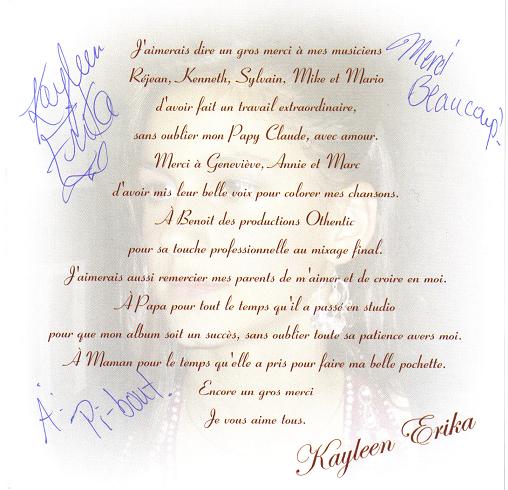 Kayleen
Erika
xo
Merci
Beaucoup!
J'aimerais dire un gros merci à mes musiciens
Réjean, Kenneth, Sylvain, Mike et Mario
d'avoir fait un travail extraordinaire,
sans oublier mon Papy Claude, avec amour.
Merci à Geneviève, Annie et Marc
d'avoir mis leur belle voix pour colorer mes chansons.
À Benoit des productions Othentic
pour sa touche professionnelle au mixage final.
J'aimerais aussi remercier mes parents de m'aimer et de croire en moi.
À Papa pour tout le temps qu'il a passé en studio
pour que mon album soit un succès, sans oublier toute sa patience avers moi.
À Maman pour le temps qu'elle a pris pour faire ma belle pochette.
Encore un gros merci
Je vous aime tous.
Kayleen Erika
À:
Pi-bout!